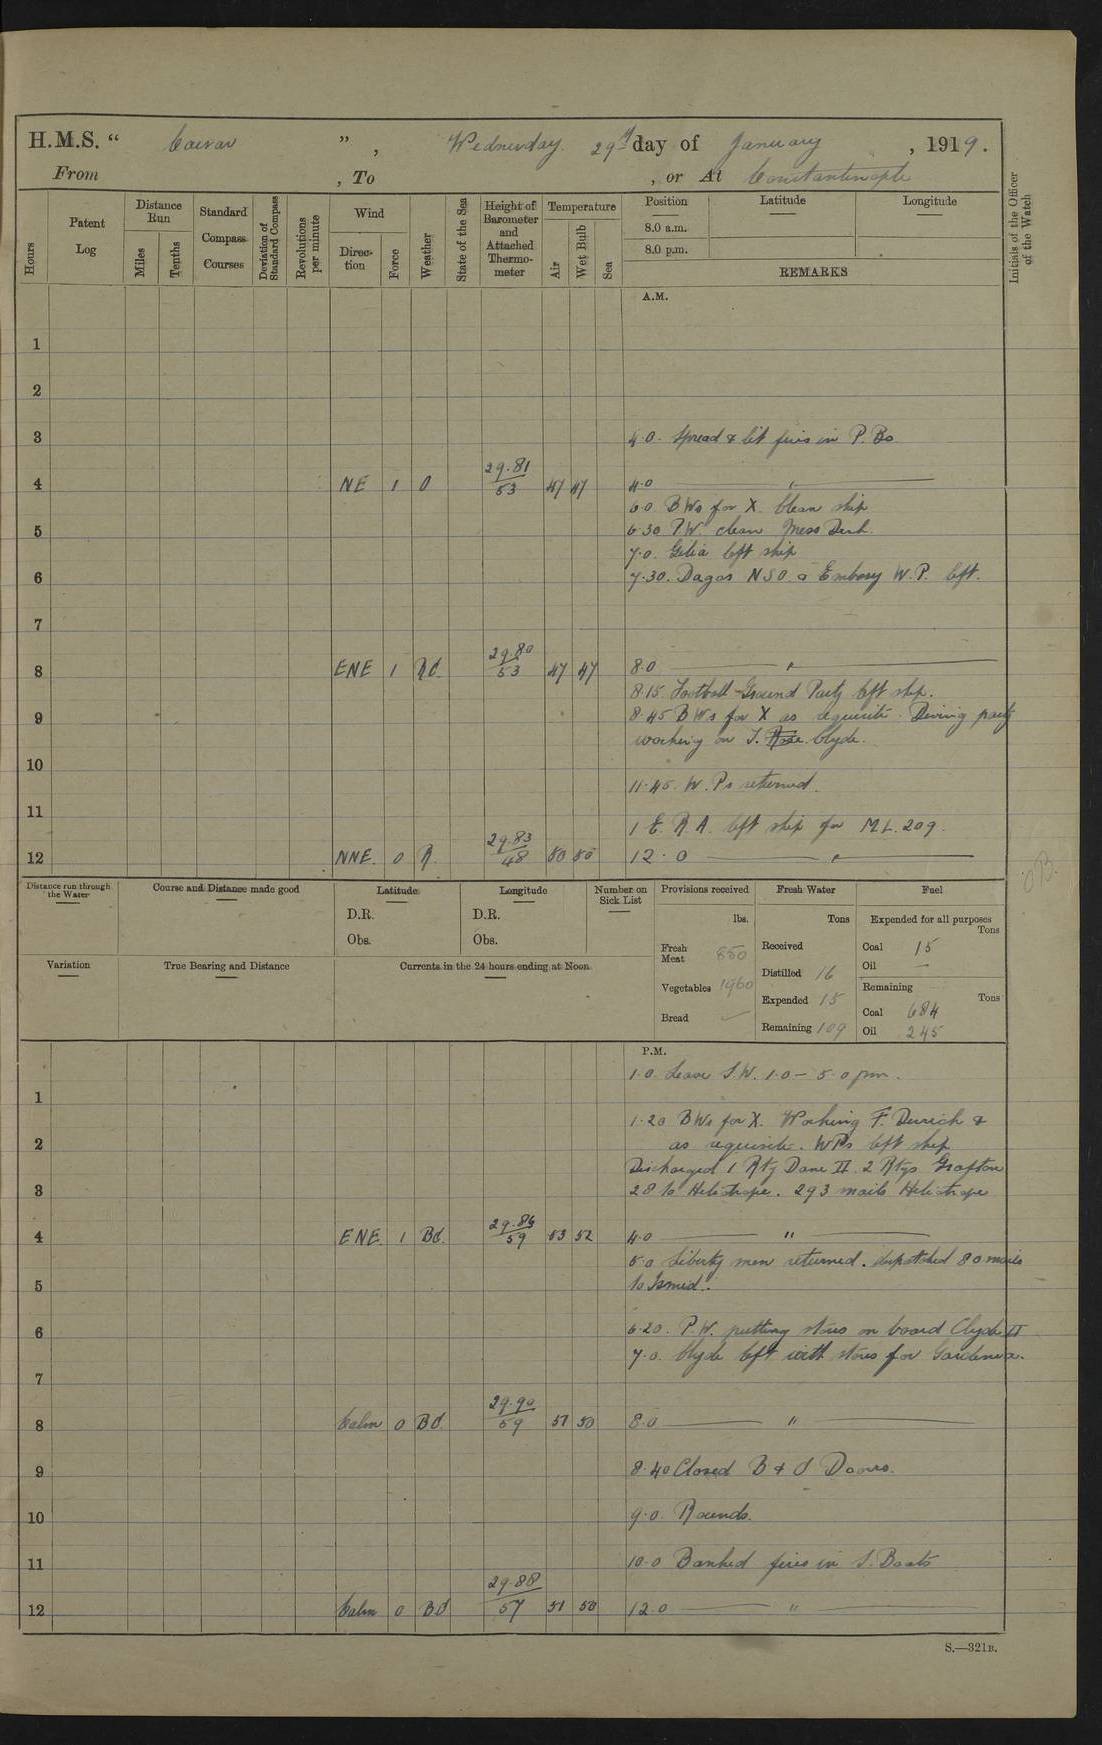 H.M.S. “ Caesar ” , Wednesday 29th day of January , 1919.
From , To , or At Constantinople
Hours
Patent Log
Distance Run
Miles
Tenths
Standard Compass Courses
Deviation of Standard Compass
Revolutions per minute
Wind
Direction
Force
Weather
State of the Sea
Height of Barometer and Attached Thermometer
Temperature
Air
Wet Bulb
Sea
Position Latitude Longitude
8.0 a.m.
8.0 p.m.
REMARKS
Initials of the Officer of the Watch
A.M.
1
2
3
4.0. Spread & lit fires in P. Bs
4 NE 1 O 29.81/53 47 47 4.0 ——— " ———
6.0 BWs for X. Clean ship
5
6.30 P.W. clean Mess Deck.
7.0. left ship
6
7.30. NSO & Embassy W.P. left.
7
8 ENE 1 Rd. 29.80/53 47 47 8.0 ——— " ———
8.15 Football-Ground Party left ship.
9
8.45 BWs for X as requisite. Diving party
working on Clyde.
10
11.45. W.Ps returned.
11
1 E.R.A. left ship for M.L. 209.
12 NNE. 0 R. 29.83/48 50 50 12.0 ——— " ———
Distance run through the Water
Course and Distance made good
Latitude
D.R.
Obs.
Longitude
D.R.
Obs.
Number on Sick List
Provisions received
lbs.
Fresh Meat 850
Vegetables 1960
Bread
Fresh Water
Tons
Received
Distilled 16
Expended 15
Remaining 109
Fuel
Expended for all purposes
Tons
Coal 15
Oil —
Remaining
Tons
Coal 684
Oil 245
Variation
True Bearing and Distance
Currents in the 24 hours ending at Noon
P.M.
1.0. Leave 1.0 – 5.0 pm.
1
1.20 BWs for X. Working &
2
as requisite. WPs left ship
Discharged 1 Rtg Dane II. 2 Rtgs. Grafton
3
28 to Heliotrope. 293 mails Heliotrope
4 ENE. 1 Bd. 29.86/59 53 52 4.0 ——— " ———
5.0 Liberty men returned. dispatched 80 mails
5
to Ismid.
6
6.20. P.W. putting stores on board Clyde II
7.0. Clyde left with stores for Gardenia.
7
8 Calm 0 Bd. 29.90/59 51 50 8.0 ——— " ———
9
8.40 Closed B & d Doors.
10
9.0. Rounds.
11
10.0 Banked fires in S. Boats
12 Calm 0 Bd 29.88/57 51 50 12.0 ——— " ———
S.—321B.